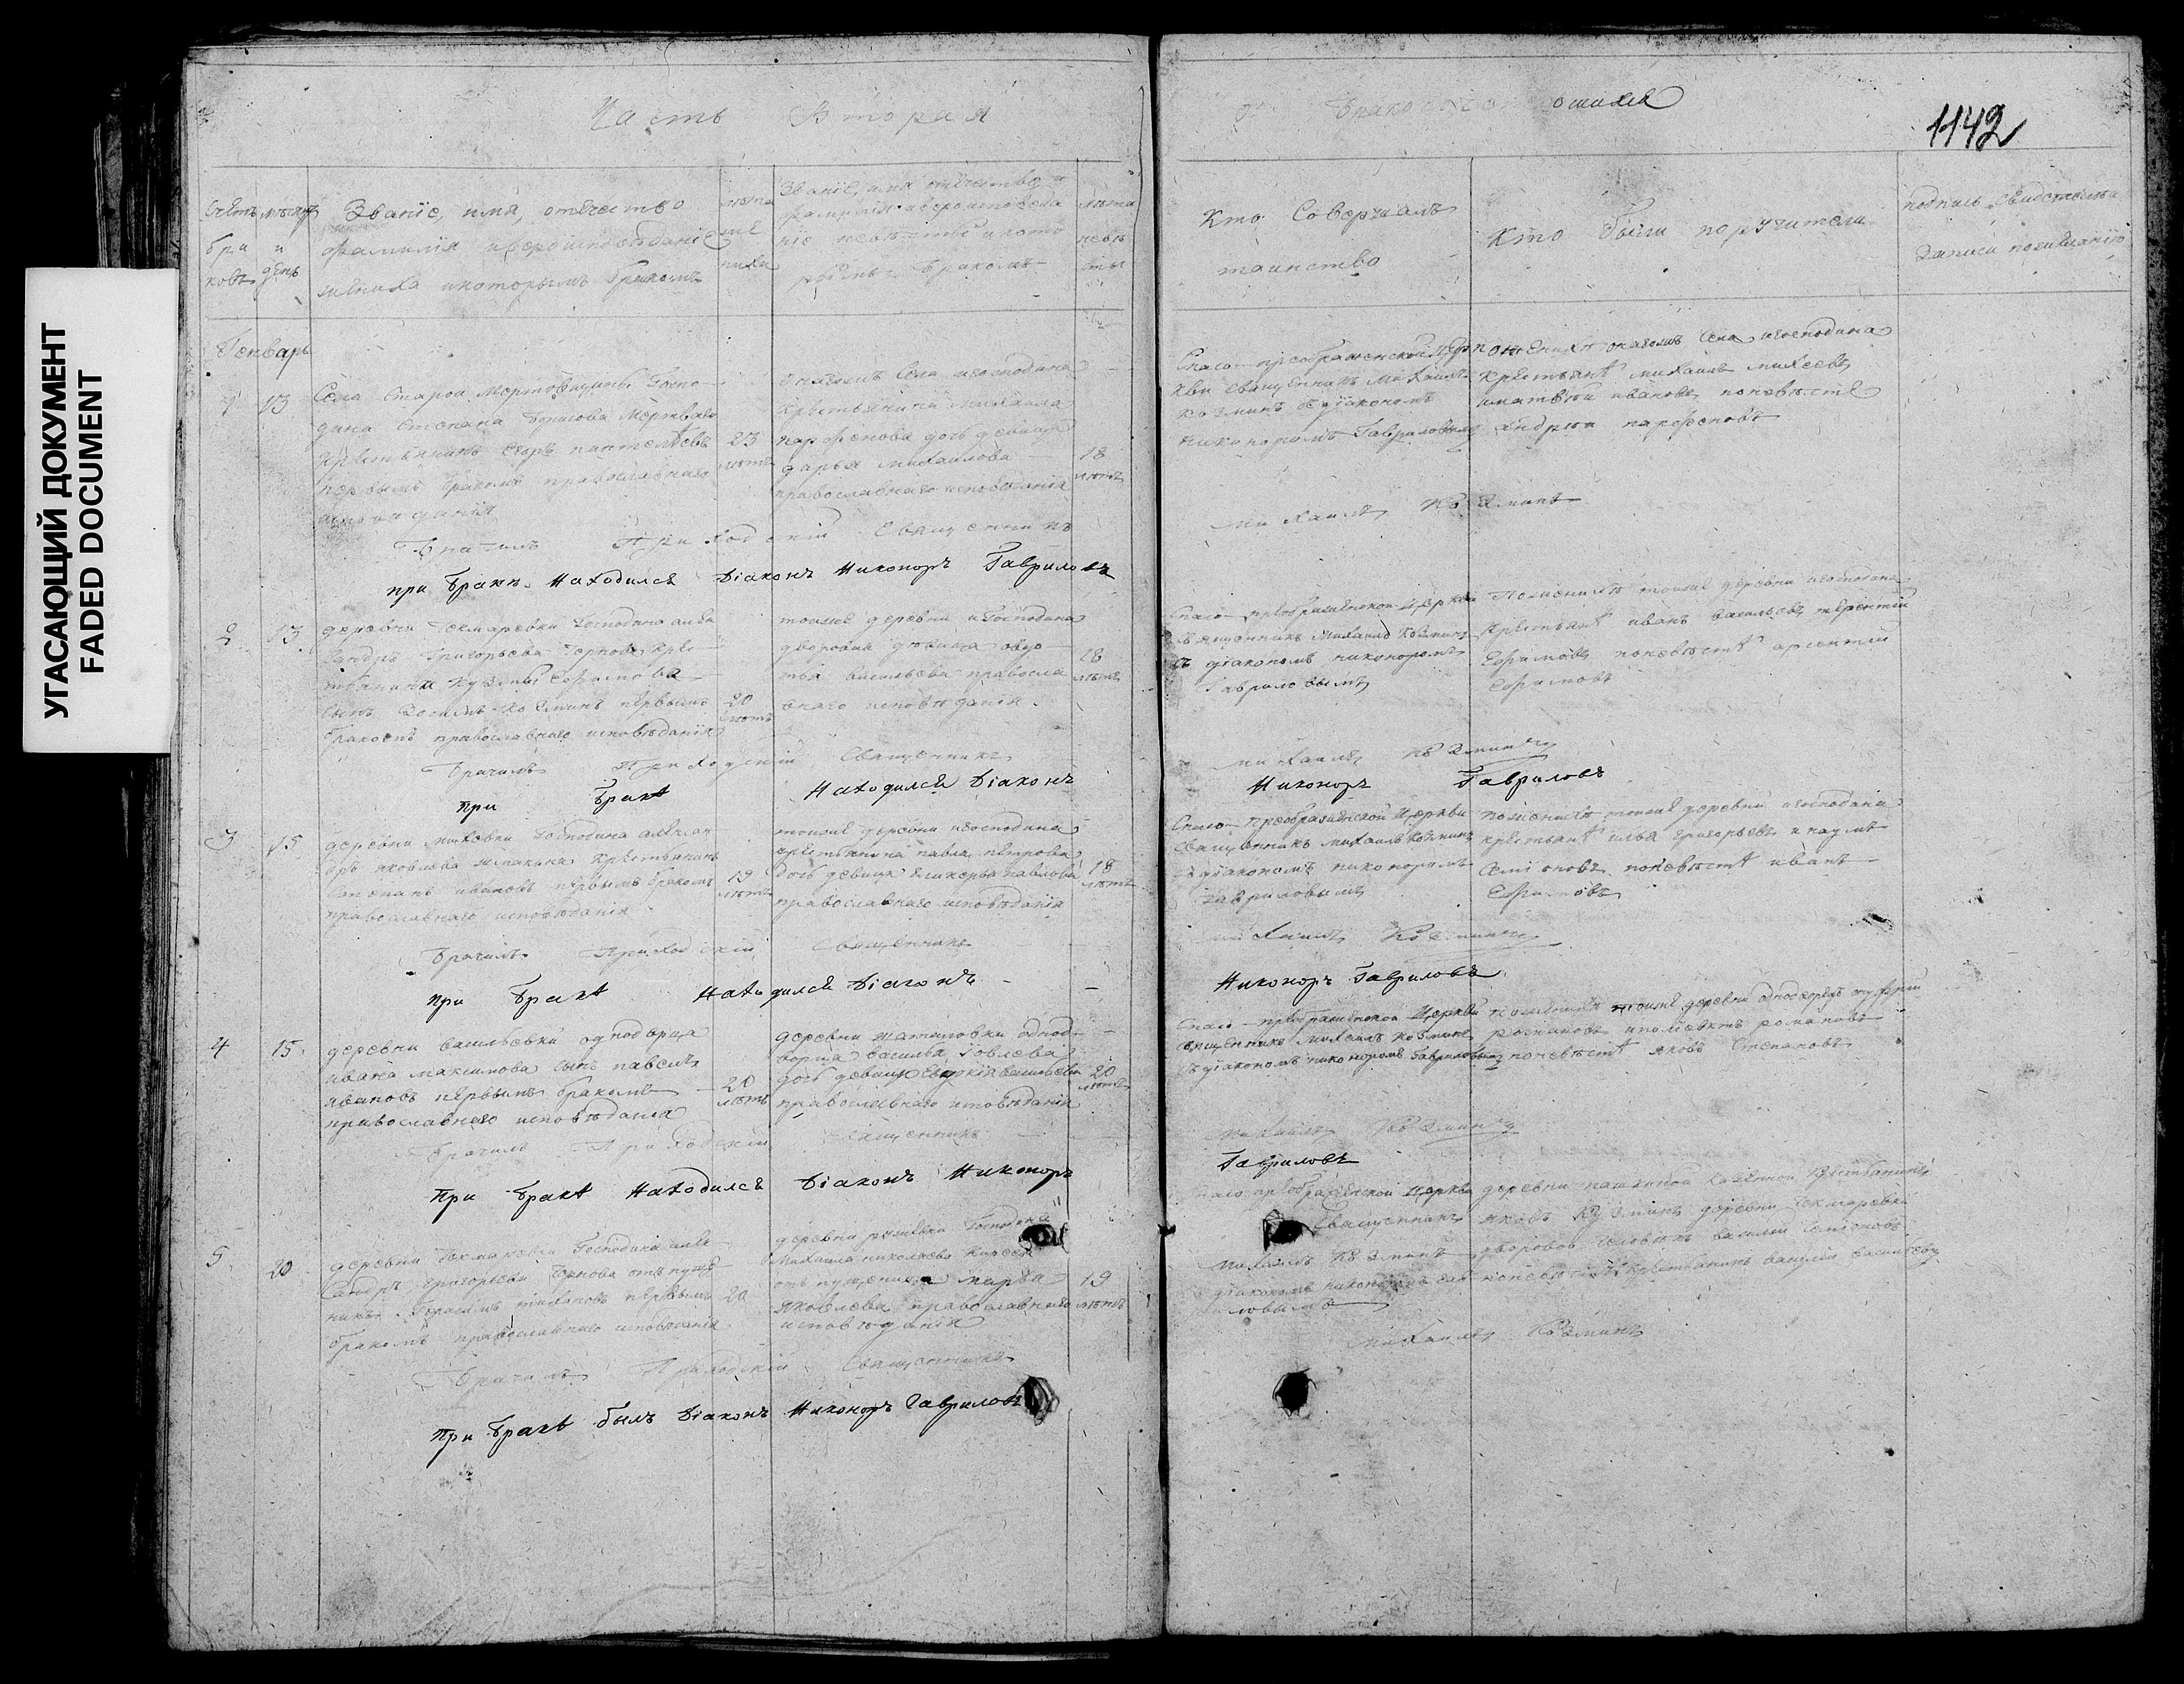 УГАСАЮЩИЙ ДОКУМЕНТ
FADED DOCUMENT
Часть Вторая
о
1142
Счетъ
бра
ковъ
мѣсяцъ
и
день
Званіе, имя, отечество
фамилія и вероисповѣданіе
жениха и которымъ бракомъ
лѣта
же
ниха
Званіе, имя отечество и
фамилія и вероисповѣда
ніе невѣсты и кото
рымъ бракомъ
лѣта
невѣ
сты
Кто Совершалъ
таинство
Кто были поручители
подпись свидетелей
записи по желанію
Генварь
1
13
Села Старой Мертовщины Госпо-
дина Степана Борисова Мертваго
крестьянинъ Егоръ пантелѣевъ
первымъ бракомъ православнаго
исповеданія
23
лѣтъ
онагожъ Села и господина
крестьянина Михаила
парфенова дочь девица
дарья михаилова
православнаго исповѣданія
18
лѣтъ
Спасо-преображенской
свещенникъ Михаилъ
Козминъ
Никоноромъ Гавриловымъ
по женихѣ онагожъ Села и господина
крестьяне михаилъ михеевъ
и матвѣй ивановъ по невѣсте
Андрѣй парфеновъ
Брачилъ Приходскій Священникъ
Михаилъ Козминъ
при бракѣ Находился Діаконъ Никоноръ Гавриловъ
2
13
деревни Чекмаревки Господина алек
сандръ Григорьева Чернова кре-
стьянина Кузмы Ефимова
сынъ Козминъ первымъ
бракомъ православнаго исповѣданія
20
лѣтъ
тоиже деревни и Господина
дворовая девица авдо-
тья васильева правосла
внаго исповѣданія
18
лѣтъ
Спасо-преображенской Церкви
Священникъ Михаилъ Козминъ
съ діакономъ никоноромъ
Гавриловымъ
По женихѣ тоиже деревни и господина
Крестьяне иванъ васильевъ терентий
Ефимовъ по невѣсте арсентей
Ефимовъ
Брачилъ Приходскій Священникъ
Михаилъ Козминъ
при бракѣ Находился Діаконъ
Никоноръ Гавриловъ
3
15
деревни михѣевки Господина алексан
дръ яковлева крестьянинъ
Степанъ ивановъ первымъ бракомъ
православнаго исповѣданія
19
лѣтъ
тоиже деревни и господина
крестьянина павла петрова
дочь девица гликерья павлова
православнаго исповѣданія
18
лѣтъ
Спасо-преображенской Церкви
Священникъ михаилъ Козминъ
съ діакономъ никоноромъ
гавриловымъ
по женихѣ тоиже деревни и господина
крестьяне илья григорьевъ и наумъ
Семіоновъ по невѣсте иванъ
Ефимовъ
Брачилъ Приходскій Священникъ
Михаилъ Козминъ
при бракѣ Находился Діаконъ
Никоноръ Гавриловъ
4
15
деревни васильевки однодворца
ивана максимова сынъ павелъ
ивановъ первымъ бракомъ
православнаго исповѣданія
20
лѣтъ
деревни однод-
ворца василья
дочь девица васильева
православнаго исповѣданія
20
лѣтъ
Спасо-преображенской Церкви
священникъ Михаилъ Козминъ
съ діакономъ никоноромъ Гавриловымъ
по женихѣ тоиже деревни однодворцы
романовъ и романовъ
по невѣсте яковъ Степановъ
Брачилъ Приходскій Священникъ
Михаилъ Козминъ
При бракѣ Находился Діаконъ Никоноръ
Гавриловъ
5
20
деревни Чекмаревки Господина алек
сандръ григорьева Чернова отпуще
никъ первымъ
бракомъ православнаго исповѣданія
20
деревни Господина
Михаила николаева
отпущеница марфа
яковлева православнаго
исповѣданія
19
лѣтъ
Спасо преображенской Церкви
Священникъ
Михаилъ Козминъ
съ діакономъ никоноромъ гав
риловымъ
деревни
яковъ Кузминъ деревни Чекмаревки
дворовой человѣкъ василей Семіоновъ
по невѣсте крестьянинъ
Брачилъ Приходскій Священникъ
Михаилъ Козминъ
При бракѣ былъ Діаконъ Никоноръ Гавриловъ